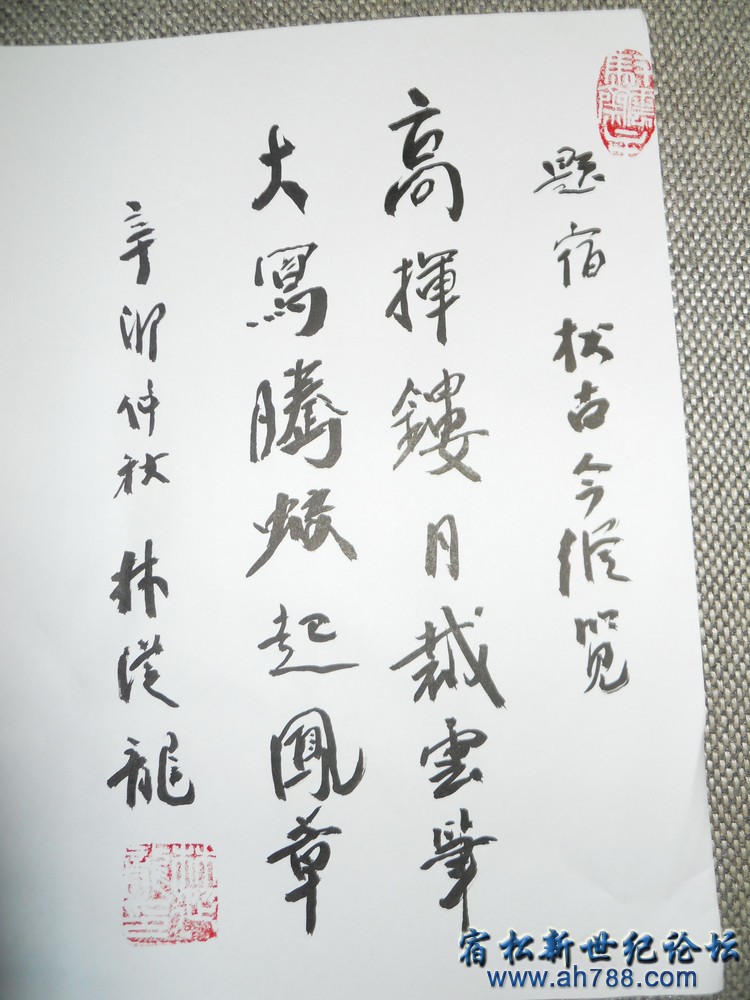 题宿松古今纵览
高揮鏤月裁雲筆
大寫騰蛟起鳳章
辛卯仲秋 林從龍
宿松新世纪论坛
www.ah788.com